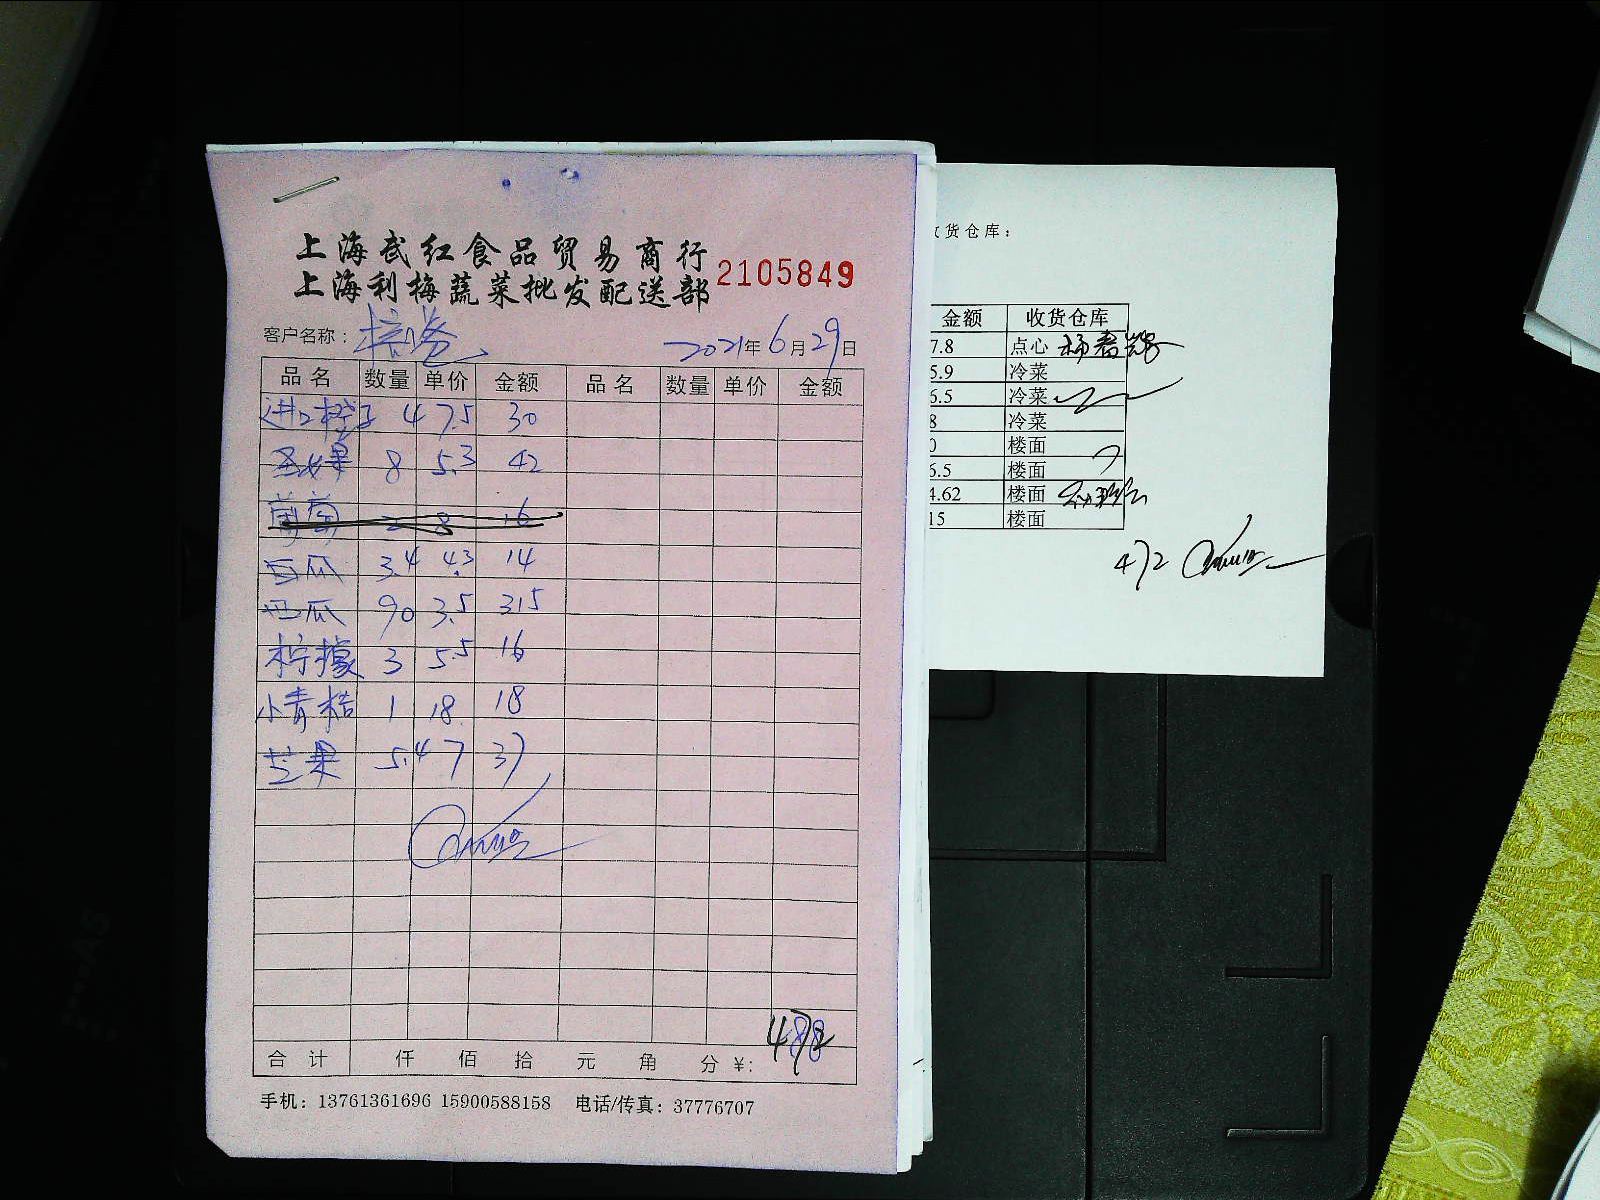 上海武红食品贸易商行
上海利梅蔬菜批发配送部
2105849
客户名称：
2021年6月29日
品名 数量 单价 金额 品名 数量 单价 金额
进口橙子 4 7.5 30
圣女果 8 5.3 42
葡萄 2 8 16
西瓜 3.4 4.3 14
西瓜 90 3.5 315
柠檬 3 5.5 16
小青桔 1 18 18
芒果 5.4 7 37
472
合计 仟 佰 拾 元 角 分 ¥:
手机：13761361696 15900588158 电话/传真：37776707
货仓库：
金额 收货仓库
7.8 点心
5.9 冷菜
6.5 冷菜
8 冷菜
0 楼面
6.5 楼面
4.62 楼面
15 楼面
472